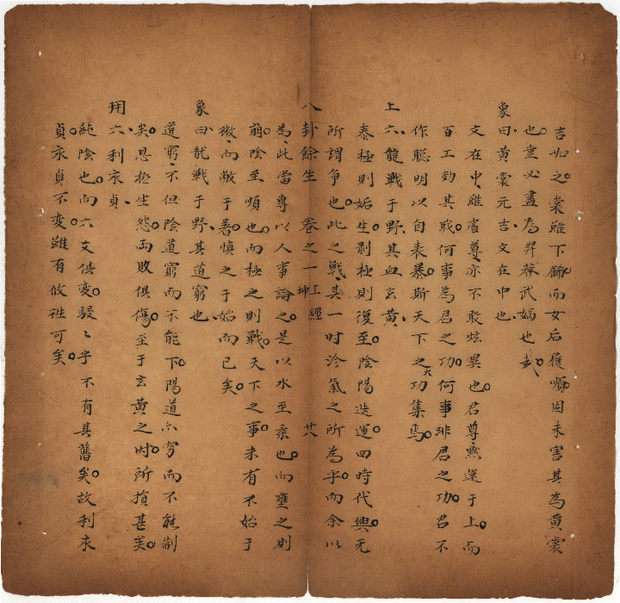 吉如之裳雖下飾而女后履順固未害其為黃裳
也豈必盡為羿莽武媧也哉
象曰黃裳元吉文在中也
文在中雖居尊亦不敢炫異也君尊默運于上而
百工効其職何事為君之功何事非君之功君不
作聰明以自表暴斯天下之大功集焉
上六龍戰于野其血玄黃
泰極則姤生剝極則復至陰陽迭運四時代興无
所謂爭也此之戰其一時沴氣之所為乎而余以
八卦餘生 卷之一 上經 坤 廿八
為此當專以人事論之是以水至柔也而壅之則
崩陰至順也而極之則戰天下之事未有不始于
微而敵于著慎之于始而已矣
象曰龍戰于野其道窮也
道窮不但陰道窮而不能下陽道亦窮而不能制
矣恩極生怨兩敗俱傷至于玄黃之時所損甚矣
用六利永貞
純陰也而六爻俱變駸〻乎不有其舊矣故利永
貞永貞不變雖有攸往可矣